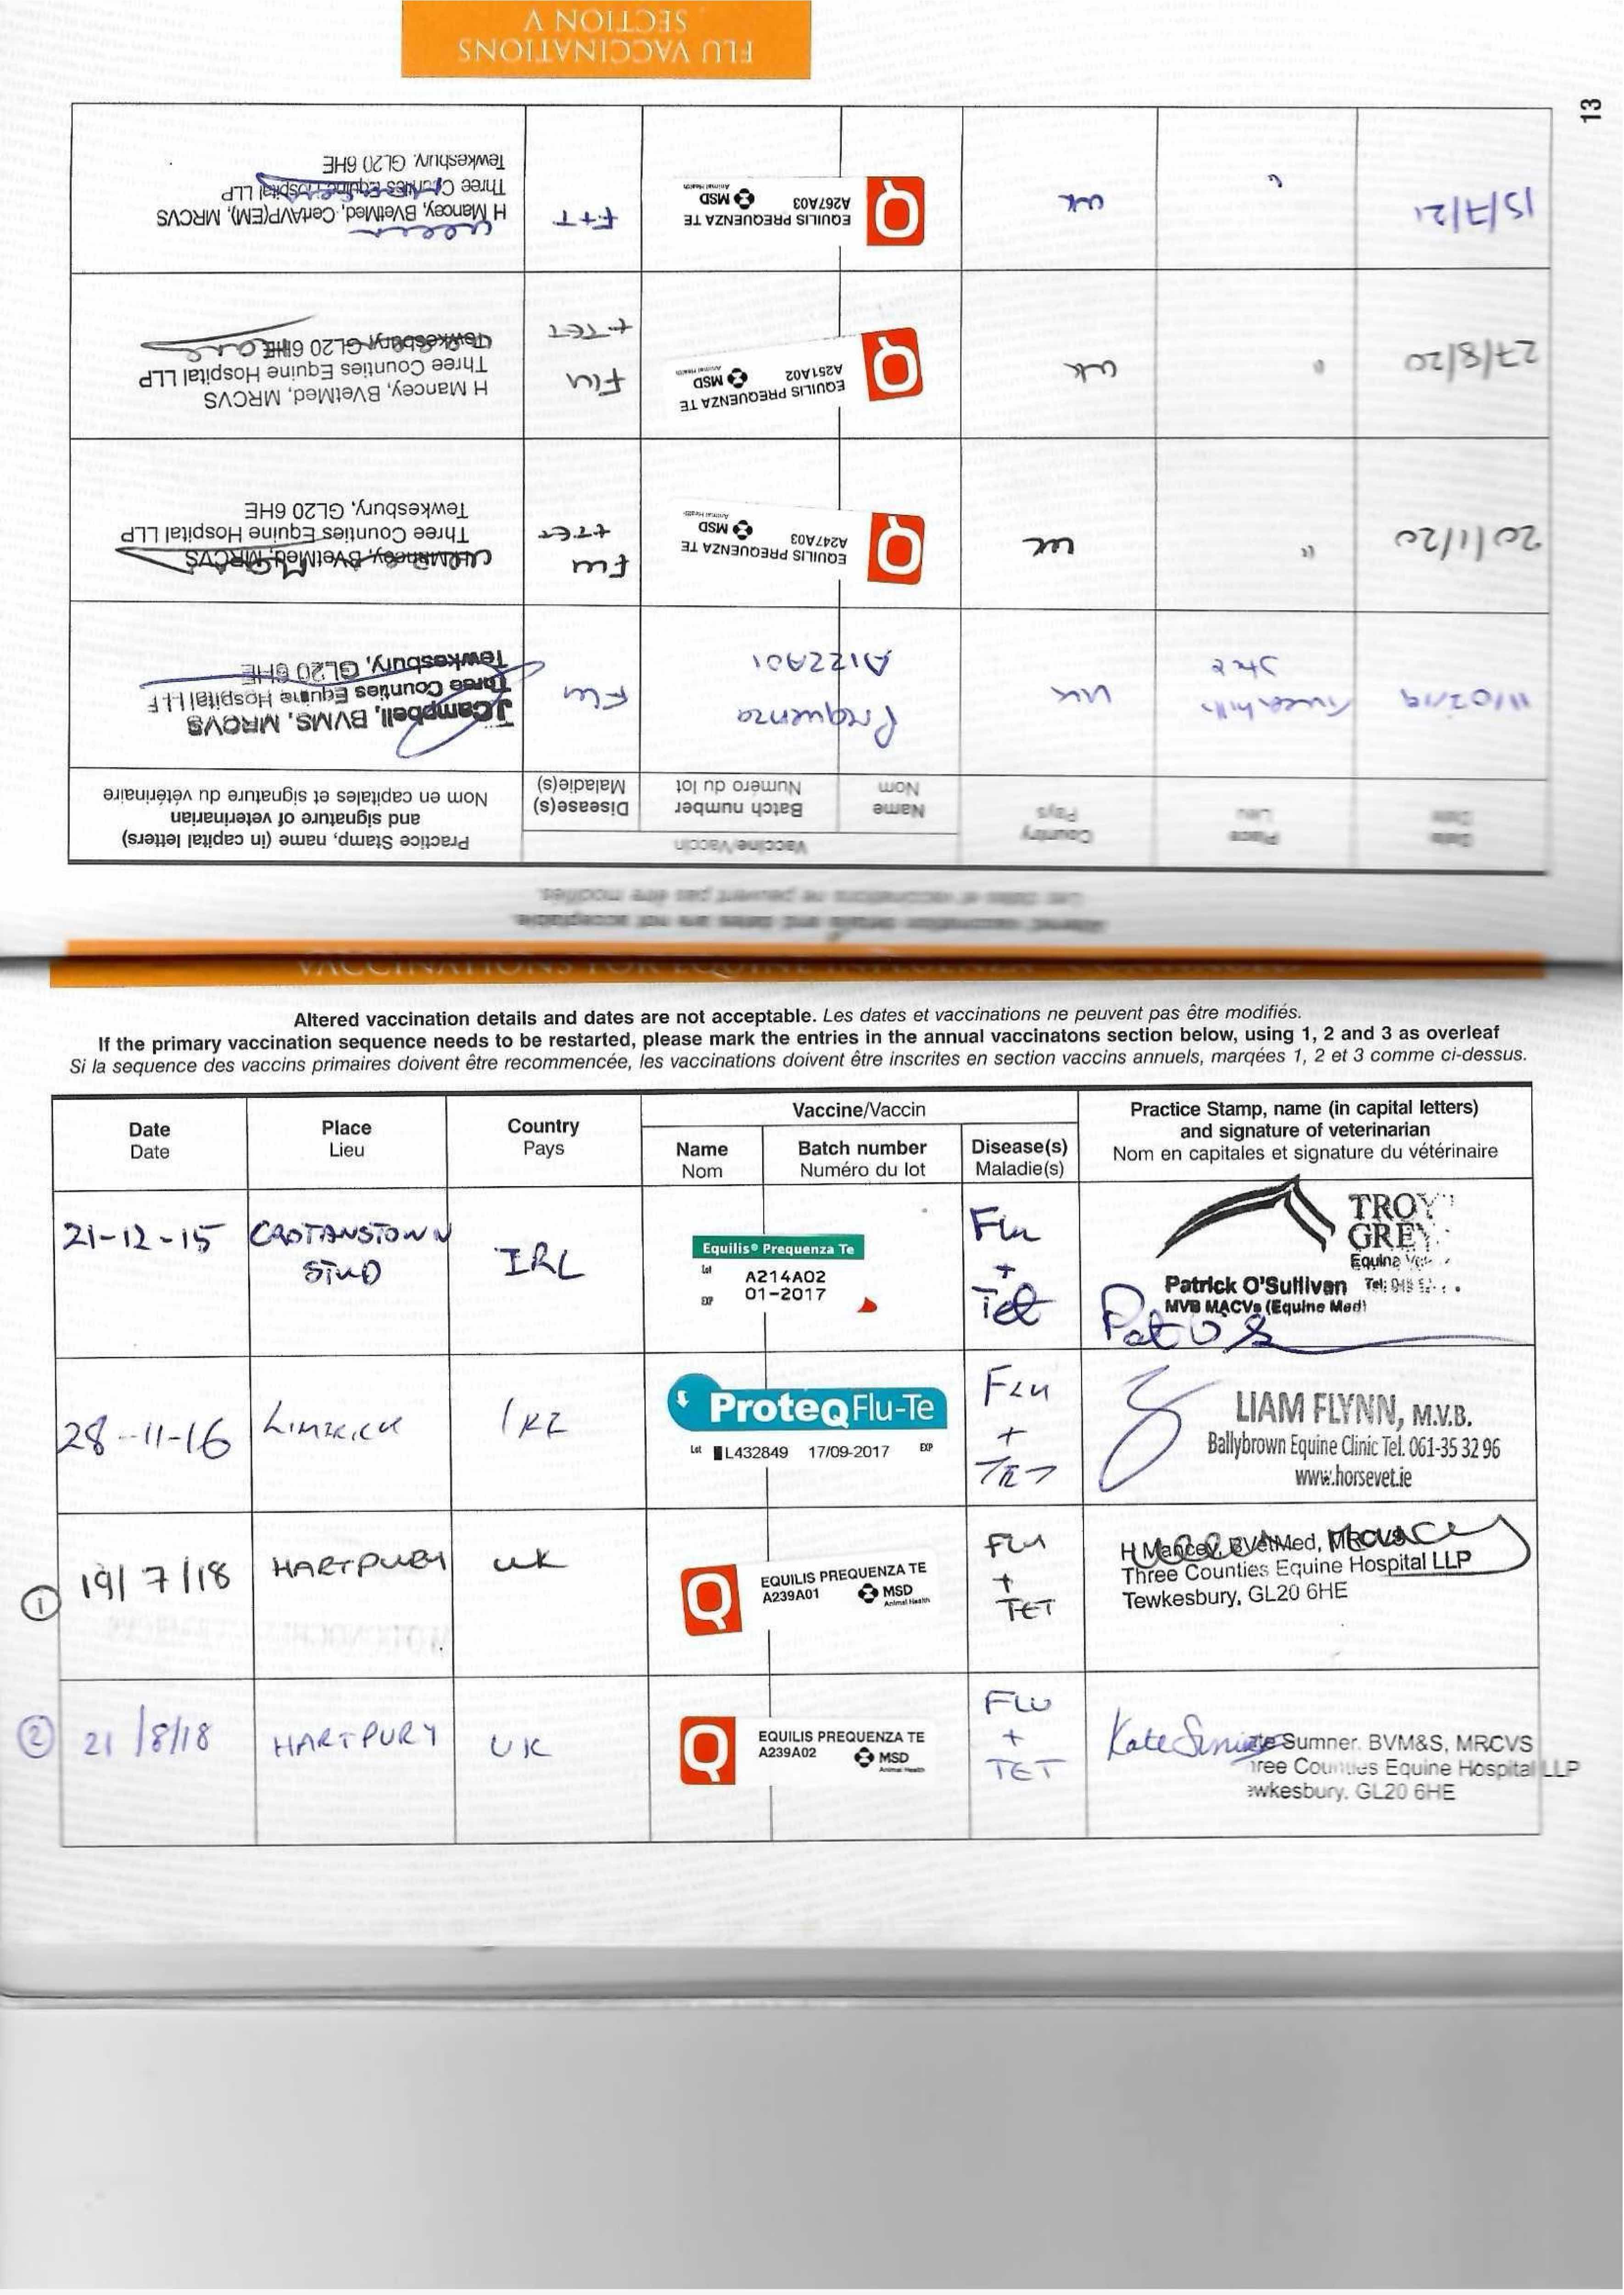 VACCINATIONS FOR EQUINE INFLUENZA
Altered vaccination details and dates are not acceptable. Les dates et vaccinations ne peuvent pas être modifiés.
If the primary vaccination sequence needs to be restarted, please mark the entries in the annual vaccinatons section below, using 1, 2 and 3 as overleaf
Si la sequence des vaccins primaires doivent être recommencée, les vaccinations doivent être inscrites en section vaccins annuels, marqées 1, 2 et 3 comme ci-dessus.
Date
Date
Place
Lieu
Country
Pays
Vaccine/Vaccin
Name
Nom
Batch number
Numéro du lot
Disease(s)
Maladie(s)
Practice Stamp, name (in capital letters)
and signature of veterinarian
Nom en capitales et signature du vétérinaire
21-12-15
CROTANSTOWN
STUD
IRL
Equilis® Prequenza Te
Lot
A214A02
EXP
01-2017
Flu
+
Tet
TROY
GREY
Equine
Patrick O'Sullivan Tel:
MVB MACVs (Equine Med)
Pat O S
28-11-16
LIMERICK
IRE
ProteqFlu-Te
Lot L432849 17/09-2017 EXP
FLU
+
TET
LIAM FLYNN, M.V.B.
Ballybrown Equine Clinic Tel. 061-35 32 96
www.horsevet.ie
1
19/7/18
HARTPURY
UK
EQUILIS PREQUENZA TE
A239A01
MSD
Animal Health
FLU
+
TET
H Mancey, BVetMed, MRCVS
Three Counties Equine Hospital LLP
Tewkesbury, GL20 6HE
2
21/8/18
HARTPURY
UK
EQUILIS PREQUENZA TE
A239A02
MSD
Animal Health
FLU
+
TET
Kate Sumner
Sumner. BVM&S, MRCVS
ree Counties Equine Hospital LLP
ewkesbury. GL20 6HE
Altered vaccination details and dates are not acceptable.
Les dates et vaccinations ne peuvent pas être modifiés.
Date
Date
Place
Lieu
Country
Pays
Vaccine/Vaccin
Name
Nom
Batch number
Numéro du lot
Disease(s)
Maladie(s)
Practice Stamp, name (in capital letters)
and signature of veterinarian
Nom en capitales et signature du vétérinaire
11/02/19
UK
Prequenza
A122A01
Flu
J Campbell, BVMS, MRCVS
Three Counties Equine Hospital LLP
Tewkesbury, GL20 6HE
20/1/20
"
UK
EQUILIS PREQUENZA TE
A247A03
MSD
Animal Health
Flu
+TET
H Mancey, BVetMed, MRCVS
Three Counties Equine Hospital LLP
Tewkesbury, GL20 6HE
27/8/20
"
UK
EQUILIS PREQUENZA TE
A251A02
MSD
Animal Health
Flu
+TET
H Mancey, BVetMed, MRCVS
Three Counties Equine Hospital LLP
Tewkesbury, GL20 6HE
15/7/21
"
UK
EQUILIS PREQUENZA TE
A267A03
MSD
Animal Health
F+T
H Mancey, BVetMed, CertAVP(EM), MRCVS
Three Counties Equine Hospital LLP
Tewkesbury. GL20 6HE
FLU VACCINATIONS
SECTION V
13